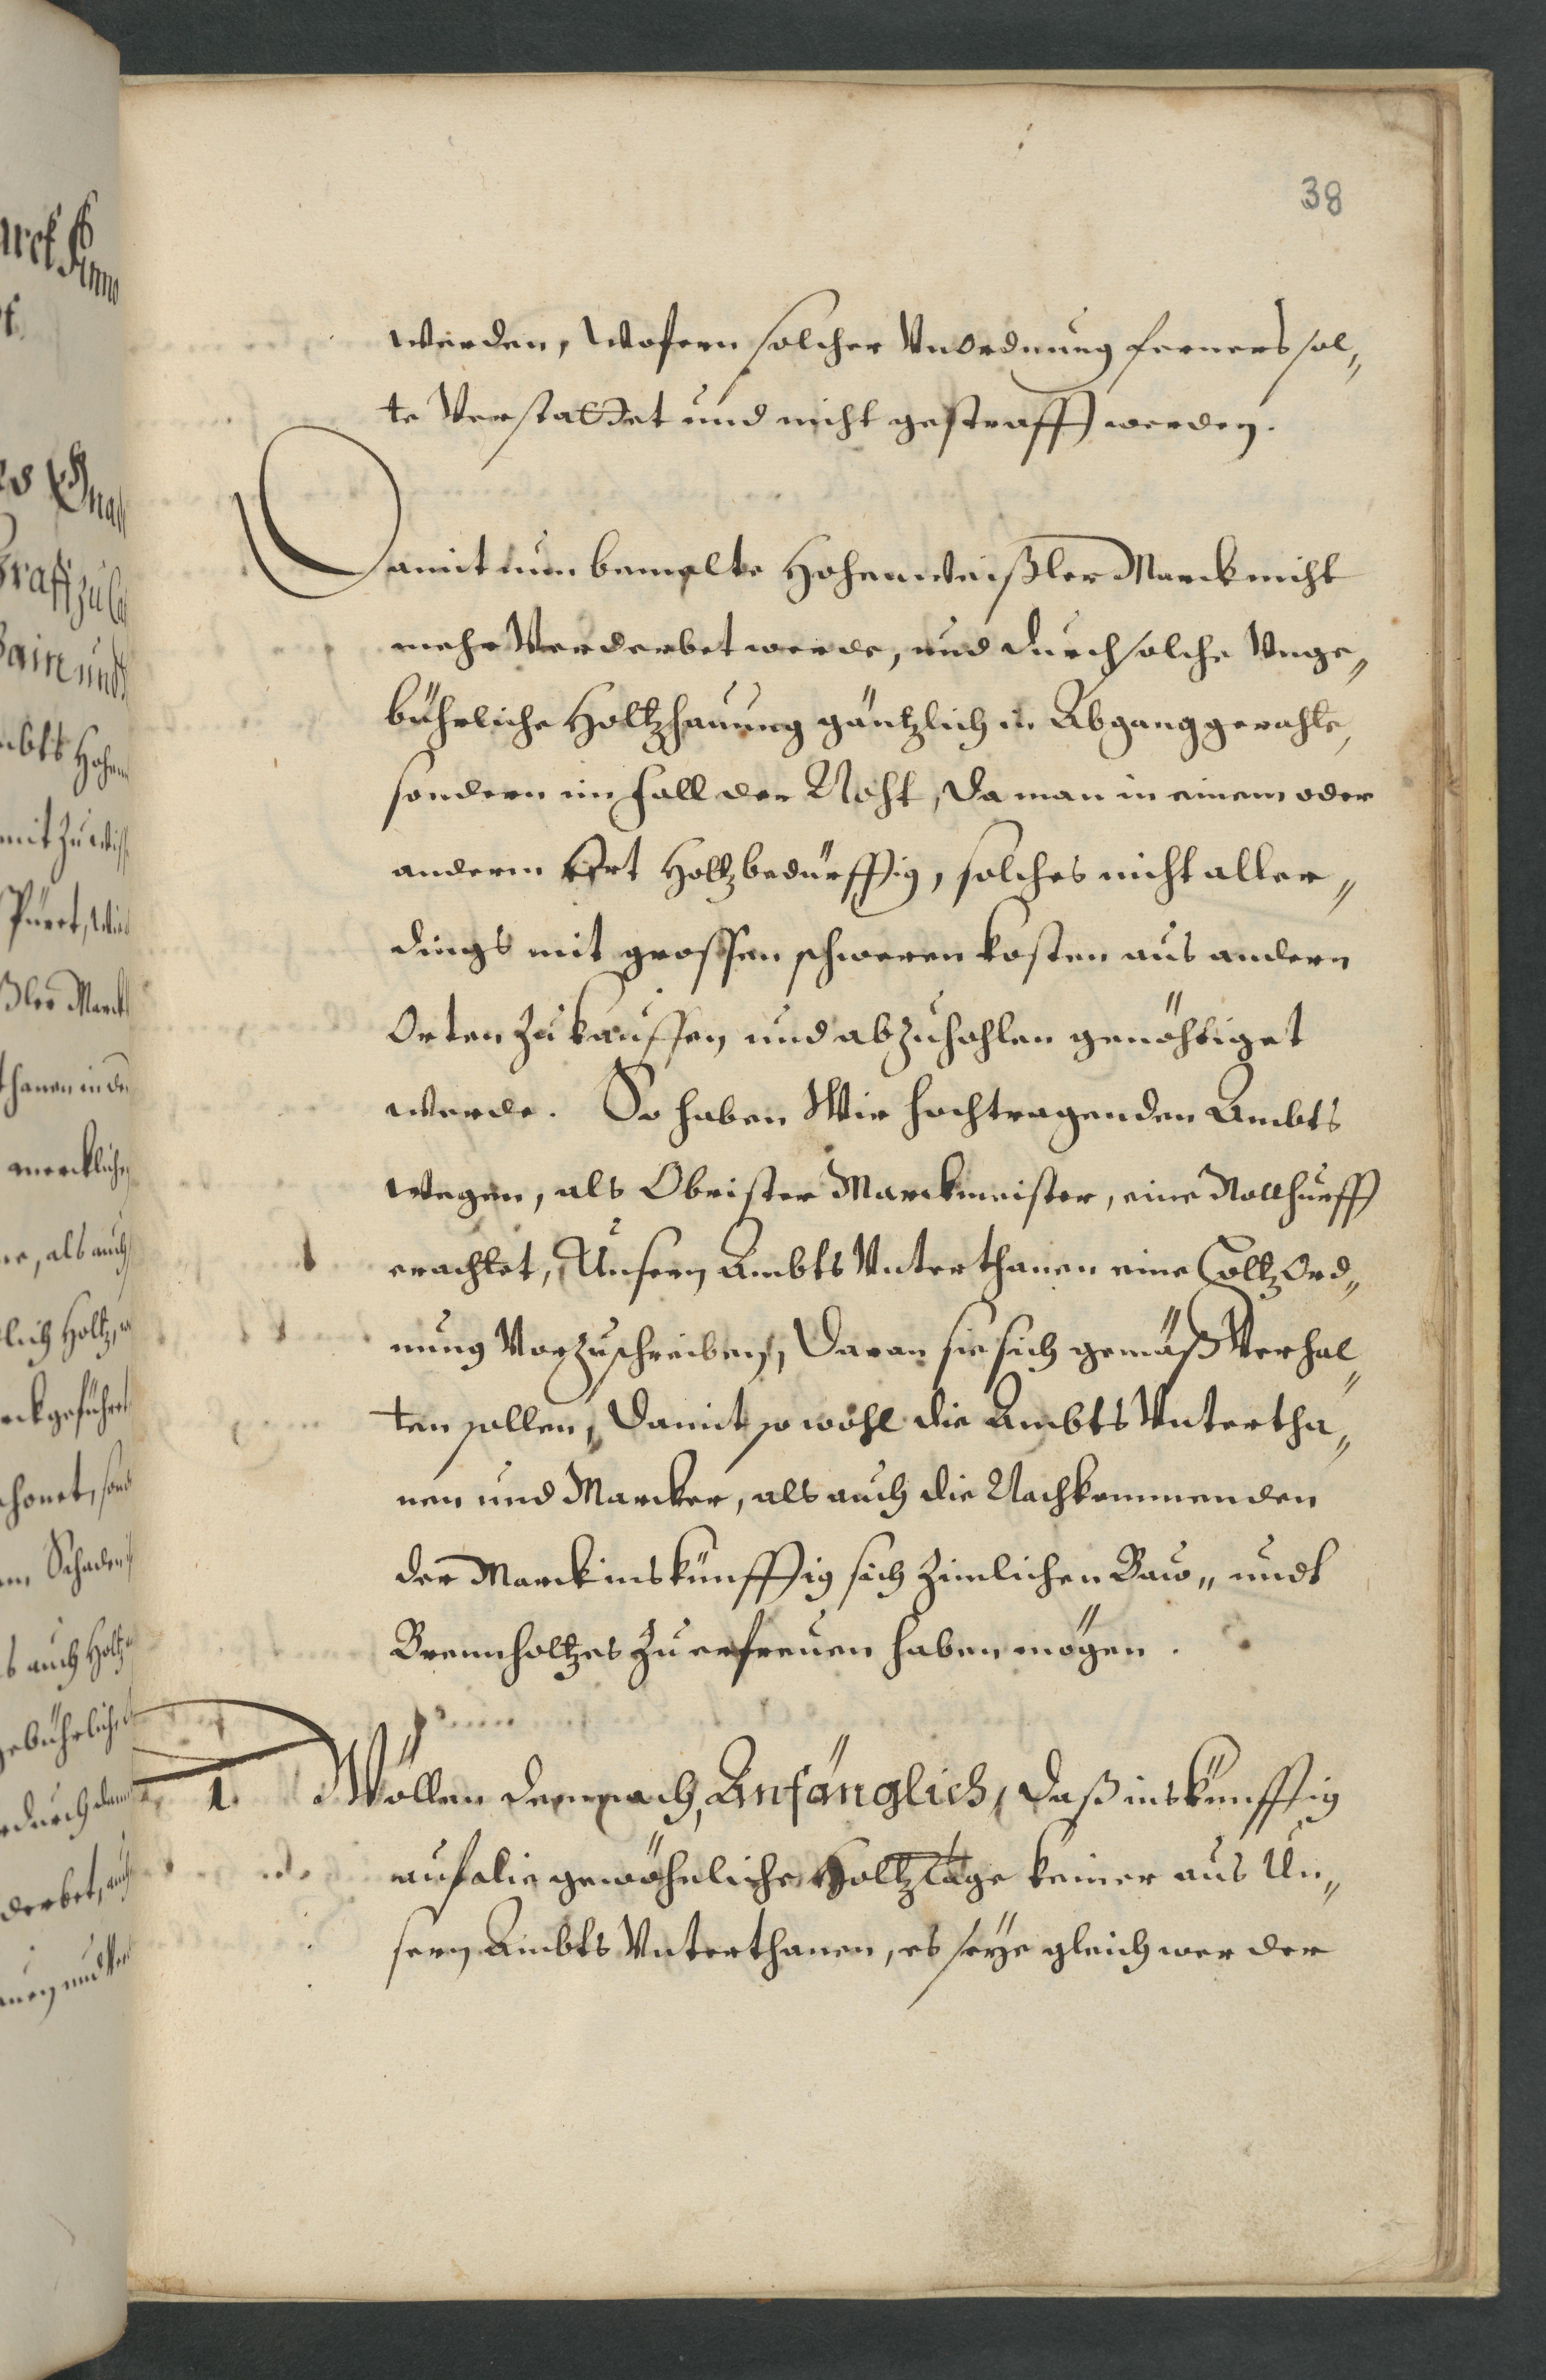 38
werden, wofern solcher Vnordnung ferners sol„
te Verstattet und nicht gestrafft werden.
Damit nun bemelte Hohenweißler Marck nicht
mehr Verderbet werde, und durch solche Vnge„
bührliche Holtzhauung gäntzlich in Abgang gerahte,
sondern im fall der Noht, da man in einem oder
anderm Ort Holtz bedürfftig, solches nicht aller„
dings mit grossen schweren kosten aus andern
Orten zu kauffen und abzuhohlen genöhtiget
werde. So haben Wir hochtragenden Ambts
wegen, als Obrister Marckmeister, eine Notthurfft
erachtet, Unsern Ambts Vnterthanen eine Holtz Ord„
nung Vorzuschreiben, daran sie sich gemäß Verhal„
ten sollen, damit so wohl die Ambts Vntertha„
nen und Marcker, als auch die Nachkommenden
der Marck inskünfftig sich zimlichen Baw„ undt
Brennholtzes zu erfreuen haben mögen.
1. Wöllen demnach, Anfänglich, daß inskünfftig
auf die gewöhnliche Holtztäge keiner aus Un„
sern Ambts Vnterthanen, es seye gleich wer der